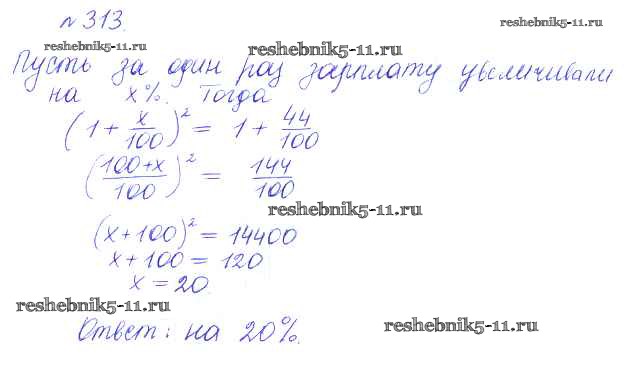 № 313.
reshebnik5-11.ru
reshebnik5-11.ru
reshebnik5-11.ru
Пусть за один раз зарплату увеличивали
на x%. Тогда
(1 + x/100)² = 1 + 44/100
((100+x)/100)² = 144/100
reshebnik5-11.ru
(x+100)² = 14400
x + 100 = 120
x = 20
reshebnik5-11.ru
Ответ: на 20%.
reshebnik5-11.ru